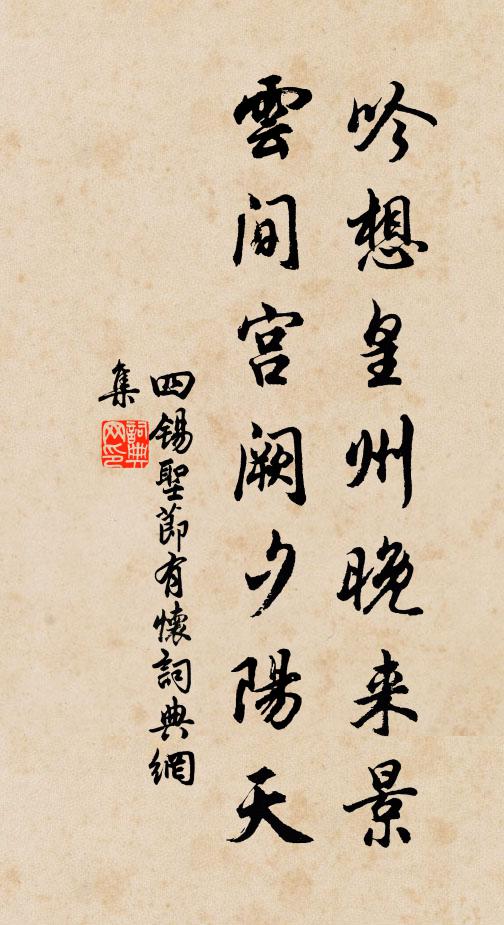 吟想皇州晚来景
雲间宫阙夕陽天
四锡聖節有懷詞典網
集
詞典
网印